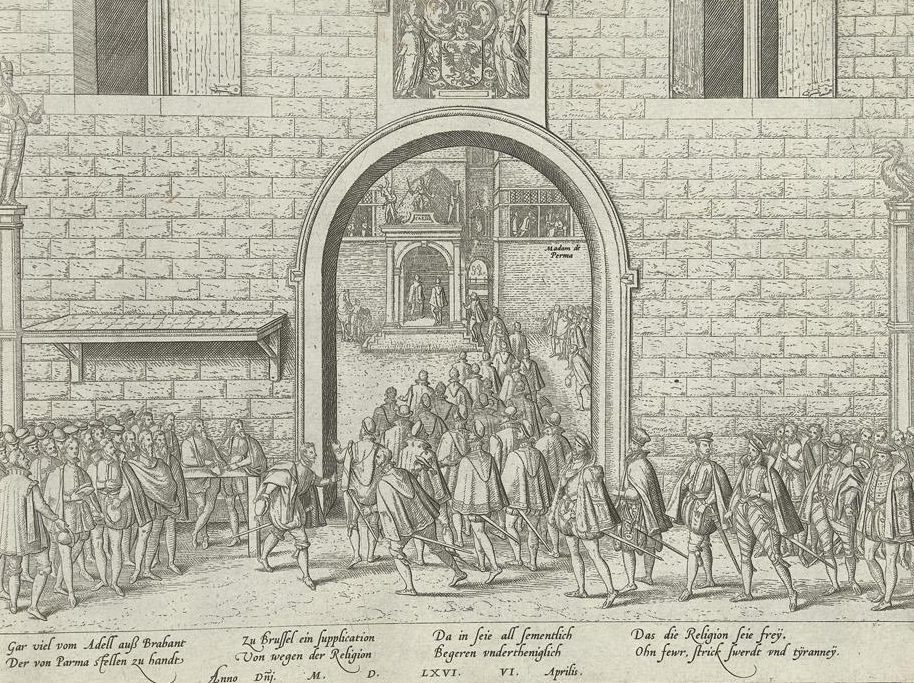 Madam de
Perma
Gar viel vom Adell auß Brabant
Der von Parma stellen zu handt
Zu Brussel ein supplication
Von wegen der Religion
Da in seie all sementlich
Begeren vndertheniglich
Das die Religion seie freÿ.
Ohn fewr, strick swerdt vnd tÿranneÿ.
Anno Dñj. M. D. LXVI. VI. Aprilis.